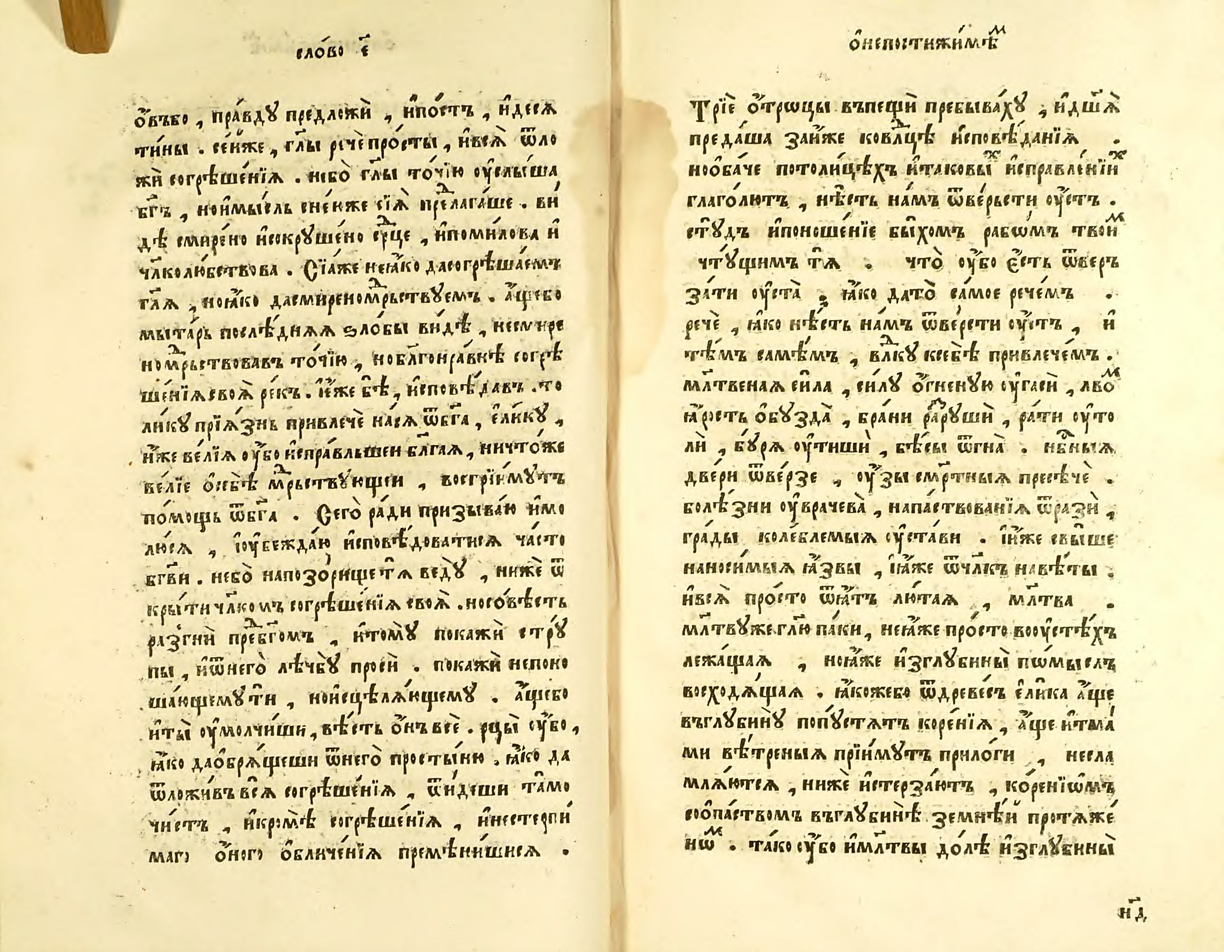 сло́во е҃
ѻ҆въбо , пра́вду предложѝ , и҆по́стъ , и҆десѧ
ти́ны . се́йже , гл҃ы рⷱ҇епро́сты , и҆всѧ̀ ѿло
жѝ согрѣше́нїѧ . небо̀ гл҃ы то́чїю ᲂу҆слы́ша
бг҃ъ , нои҆мы́сль снеѧ́же сїѧ̀ прⷣелага́ше . ви
дѣ̀ смире́но и҆сокруше́но срⷣце , и҆поми́лова и҆
чл҃колю́бствова . Сїѧ́же неꙗ҆́ко дасогрѣша́емъ
гл҃ѧ , ноꙗ҆́ко дасмиреномⷣрьствуемъ . а҆́щебо
мыта́рь послѣ́днѧѧ ѕло́бы ви́дѣ , несмире
номⷣрьствовавъ то́чїю , ноблгⷭ҇онра́внѣ согрѣ
ше́нїѧсвоѧ̀ ре́къ . і҆́же бѣ̀ , и҆сповѣ́давъ . то
ли́ку прїѧ́знь привлечѐ насѧ̀ ѿбг҃а , е҆ли́ку ,
и҆́же ве́лїѧ ᲂу҆́бо и҆спра́вльшеи бл҃га́ѧ , ничто́же
ве́лїе ѻ҆себѣ̀ мⷣрьствꙋющеи , воспрїи́мутъ
по́мощь ѿбг҃а . Сего̀ ра́ди призыва́ю и҆мо
лю́сѧ , і҆ᲂу҆бежда́ю и҆сповѣ́доватисѧ ча́сто
бг҃ви . небо̀ напозо́рище тѧ̀ веду̀ , ниже ѿ
кры́ти чл҃комъ согрѣше́нїѧ своѧ̀ . носо́вѣсть
разгнѝ прⷣебг҃омъ , и҆тому̀ покажѝ стру́
пы , и҆ѿнего̀ лѣ́чбу просѝ . покажѝ непоно
ша́ющему ти , нои҆сцѣлѧ́ющему . а҆́щебо
и҆ты̀ ᲂу҆молчи́ши , вѣ́сть ѻ҆нъ всѐ . рцы̀ ᲂу҆́бо ,
ꙗ҆́ко даѻ҆брѧ́щеши ѿнего̀ просты́ню . ꙗ҆́ко да
ѿложи́въ всѧ̀ согрѣше́нїѧ , ѿи́деши та́мо
чи́стъ , и҆кромѣ̀ согрѣше́нїѧ , и҆нестерпи
маго ѻ҆ного ѻ҆бличе́нїѧ премѣ́нишисѧ .
ѻ҆непостижи́мѣⷨ
Трїѐ ѻ҆́троцы въпещѝ пребыва́ху , и҆дш҃ѧ̀
преда́ша за́йже ковлⷣцѣ и҆сповѣ́данїѧ .
нооба́че потоли́цѣхъ и҆таковыⷯ и҆справле́нїиⷯ
глаго́лютъ , нѣ́сть на́мъ ѿве́рьсти ᲂу҆стъ .
сту́дъ и҆поноше́нїе бы́хомъ рабо́мъ твоиⷨ
чту́щимъ тѧ̀ . что̀ ᲂу҆́бо є҆́сть ѿвер
за́ти ᲂу҆ста̀ , ꙗ҆́ко дато̀ са́мое рече́мъ .
речѐ , ꙗ҆́ко нѣ́сть на́мъ ѿве́рсти ᲂу҆́стъ , и҆
тѣ́мъ самѣ́мъ , влⷣку ксебѣ̀ привлече́мъ .
мл҃твенаѧ си́ла , си́лу ѻ҆́гненую ᲂу҆гасѝ , лвоⷨ
ꙗ҆́рость ѻ҆бузда̀ , бра́ни раⷥрушѝ , ра́ти ᲂу҆то
лѝ , бу́рѧ ᲂу҆тишѝ , бѣ́сы ѿгна̀ . нбⷭ҇ныѧ
две́ри ѿве́рзе , ᲂу҆́зы сме́ртныѧ пресѣ́че .
болѣ́зни ᲂу҆врачева̀ , напа́ствованїѧ ѿразѝ ,
гра́ды коле́блемыѧ ᲂу҆ста́ви . і҆́же свы́ше
наноси́мыѧ ꙗ҆́звы , і҆ꙗ҆́же ѿчл҃къ навѣ́ты .
и҆всѧ̀ про́сто ѿѧ́тъ лю́таѧ , мл҃тва .
мл҃твуже гл҃ю па́ки , неꙗ҆́же про́сто воᲂу҆стѣ́хъ
лежа́щаѧ , ноꙗ҆́же и҆зглубины̀ по́мыслъ
восходѧ́щаѧ . ꙗ҆́кожебо ѿдреве́съ е҆ли́ка а҆́ще
въглубину̀ попустѧ́тъ коре́нїѧ , а҆́ще и҆тма́
ми вѣ́треныѧ прїи́мутъ прило́ги , несла
млѧ́ютсѧ , ниже и҆стерза́ютъ , коре́нїѡмъ
соопа́ствомъ въглубинѣ̀ земнѣ́й протѧже
ноⷨ . та́ко ᲂу҆́бо и҆мл҃твы до́лѣ и҆зглубины̀
н҃д